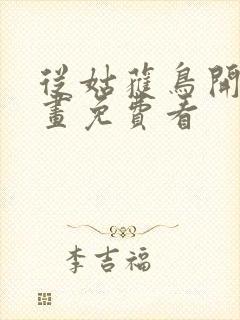 從姑蘿鳥開
畫免費看
李吉福